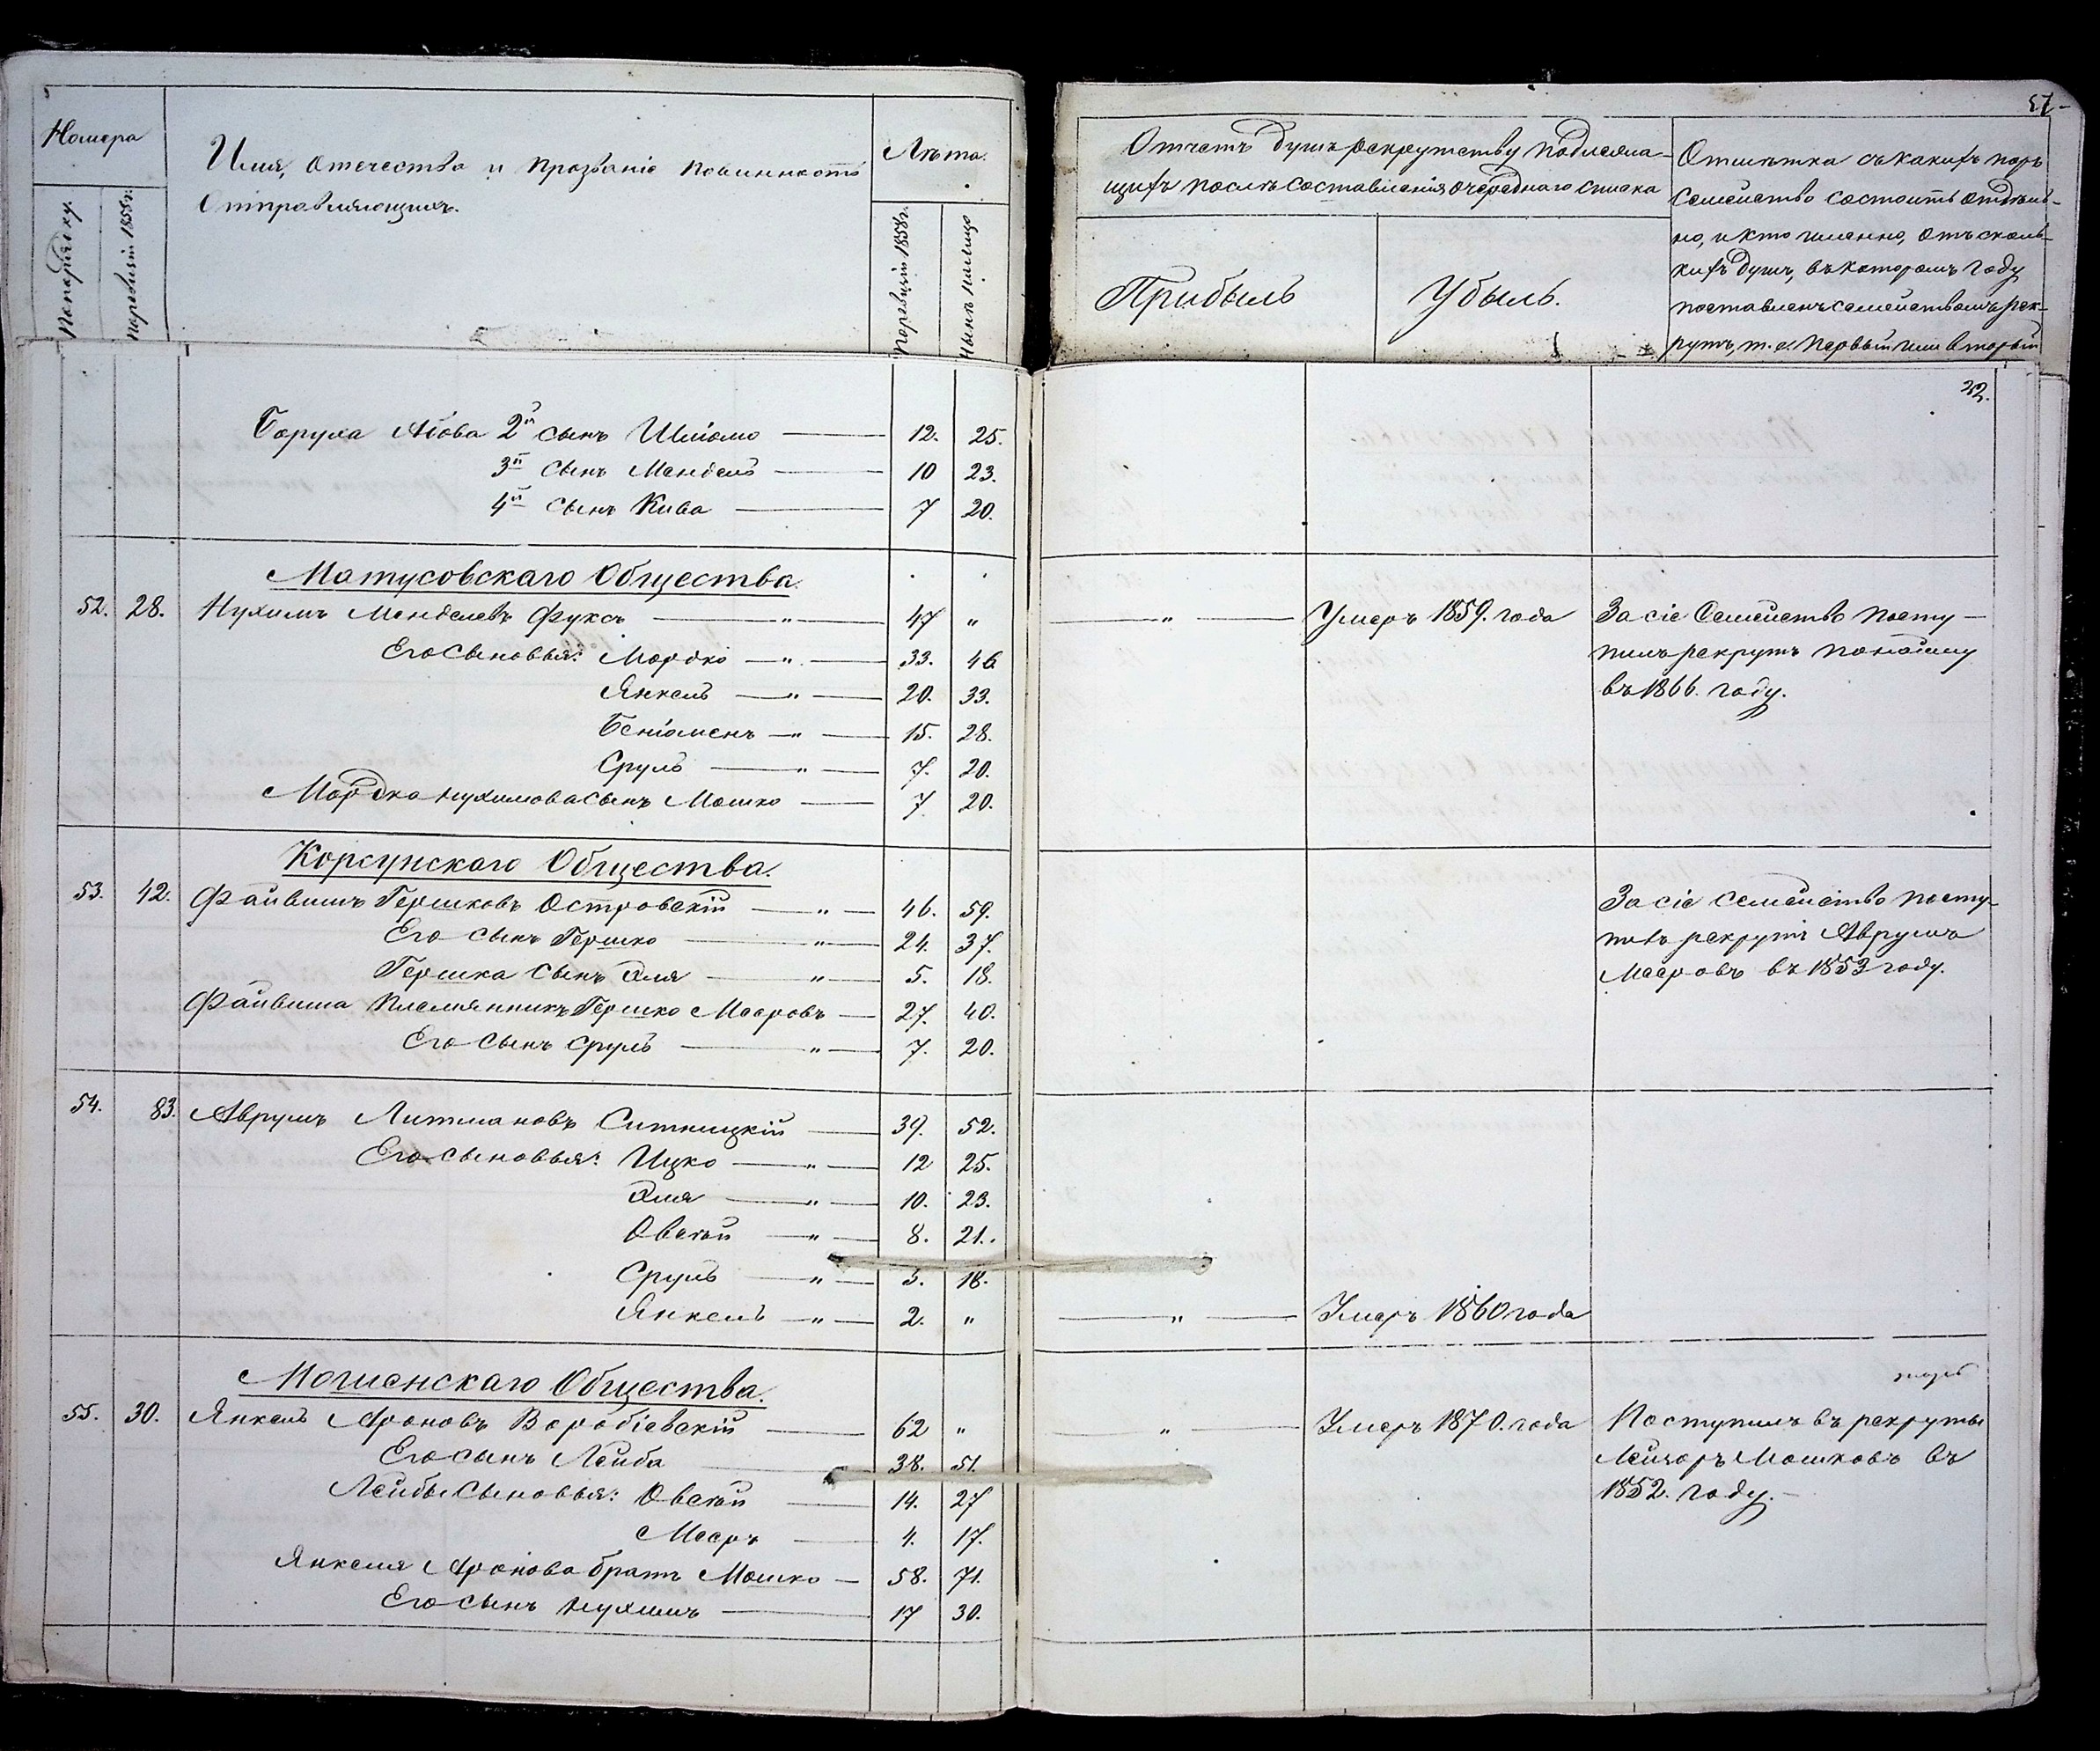 57
Номера
Имя, Отечество и Прозваніе Повинность
Отправляющихъ.
Лѣта.
По порядку.
По ревизіи 1858 г.
По ревизіи 1858 г.
Нынѣ
Отчетъ душъ рекрутству подлежа-
щихъ послѣ составленія очереднаго списка
Прибыль
Убыль.
Отмѣтка съ какихъ поръ
Семейство состоитъ отдѣль-
но, и кто именно, отъ сколь-
кихъ душъ, въ которомъ году
поставленъ семействомъ рек-
рутъ, т. е. Первый или вторый
22.
Боруха Аіова 2й сынъ Шліомо 12. 25.
3й сынъ Мендель 10 23.
4й сынъ Кива 7 20.
Матусовскаго Общества.
52. 28. Нухимъ Менделевъ Фуксъ — „ — 47 „ — „ — Умеръ 1859. года За сіе Семейство посту-
Его Сыновья: Мордко — „ — 33. 46 пилъ рекрутъ по найму
Янкель — „ — 20. 33. въ 1866. году.
Беніоменъ — „ — 15. 28.
Сруль — „ — 7. 20.
Мордка Нухимова сынъ Мошко — 7. 20.
Корсунскаго Общества.
53. 42. Файвишъ Гершковъ Островскій — „ — 46. 59. За сіе семейство посту-
Его сынъ Гершко — „ 24. 37. рекрутъ Аврумъ
Гершка сынъ Эля — „ 5. 18. Мееровъ въ 1853 году.
Файвиша Племянникъ Гершко Мееровъ — 27. 40.
Его Сынъ Сруль — „ — 7. 20.
54. 83. Аврумъ Литмановъ Ситницкій — 39. 52.
Его Сыновья: Ицко — „ — 12 25.
Эля — „ — 10. 23.
Овсѣй — „ — 8. 21.
Сруль — „ — 5. 18.
Янкель — „ — 2. „ — „ — Умеръ 1860 года
Могиленскаго Общества.
55. 30. Янкель Ароновъ Воробіевскій — 62 „ — „ — Умеръ 1870. года Поступилъ въ рекруты
Его сынъ Лейба 38. 51. Лейзоръ Мошковъ въ
Лейбы Сыновья: Овсѣй — 14. 27 1852. году. —
Мееръ — 4. 17.
Янкеля Аронова братъ Мошко — 58. 71.
Его сынъ Нухимъ — 17 30.